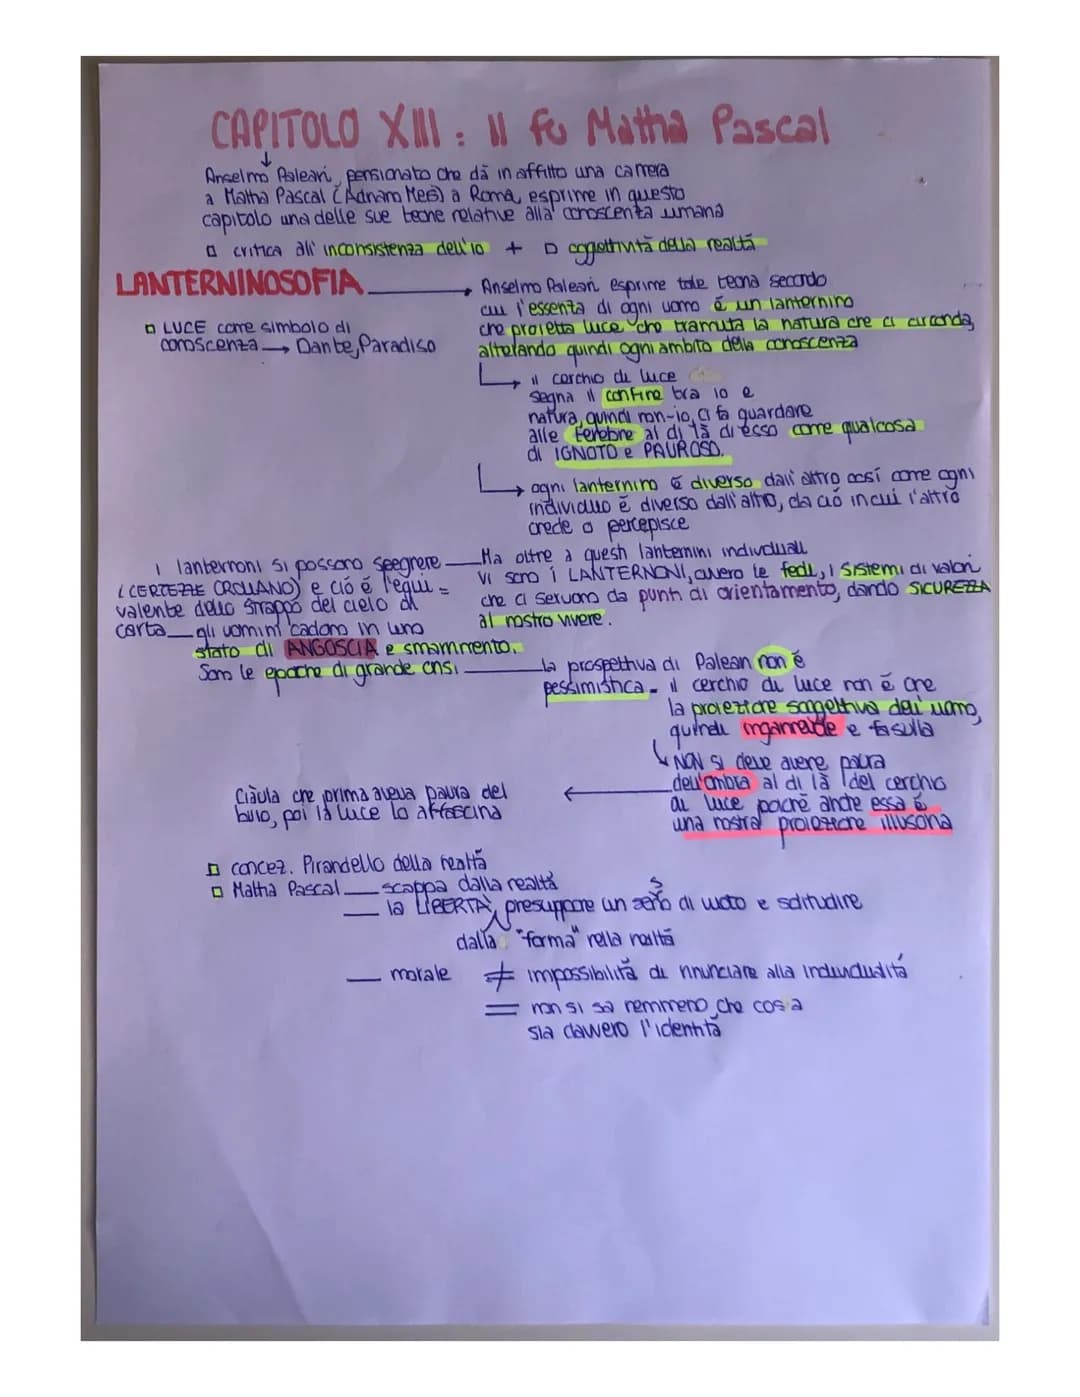 CAPITOLO XIII: Il fu Mattia Pascal
Anselmo Paleari, pensionato che dà in affitto una camera
a Mattia Pascal (Adriano Meis) a Roma, esprime in questo
capitolo una delle sue teorie relative alla conoscenza umana
critica all'inconsistenza dell'io + oggettività della realtà
LANTERNINOSOFIA
Anselmo Paleari esprime tale teoria secondo
cui l'essenza di ogni uomo è un lanternino
che proietta luce che tramuta la natura che ci circonda,
alterando quindi ogni ambito della conoscenza
LUCE come simbolo di
conoscenza → Dante, Paradiso
il cerchio di luce
segna il confine tra io e
natura, quindi non-io, ci fa guardare
alle tenebre al di là di esso come qualcosa
di IGNOTO e PAUROSO.
ogni lanternino è diverso dall'altro così come ogni
individuo è diverso dall'altro, da ciò in cui l'altro
crede o percepisce
Ma oltre a questi lanternini individuali
vi sono i LANTERNONI, ovvero le fedi, i sistemi di valori
che ci servono da punti di orientamento, dando SICUREZZA
al nostro vivere.
I lanternoni si possono speegnere
(CERTEZZE CROLLANO) e ciò è l'equi =
valente dello strappo del cielo di
carta gli uomini cadono in uno
stato di ANGOSCIA e smarrimento.
Sono le epoche di grande crisi
la prospettiva di Paleari non è
pessimistica - il cerchio di luce non è che
la proiezione soggettiva dell'uomo,
quindi ingannevole e fasulla
NON si deve avere paura
dell'ombra al di là del cerchio
di luce poiché anche essa è
una nostra proiezione illusoria
Ciàula che prima aveva paura del
buio, poi la luce lo affascina
concez. Pirandello della realtà
Mattia Pascal scappa dalla realtà
la LIBERTÀ, presuppone un senso di vuoto e solitudine
dalla "forma" nella realtà
morale ≠ impossibilità di rinunciare alla individualità
= non si sa nemmeno che cosa
sia davvero l'identità